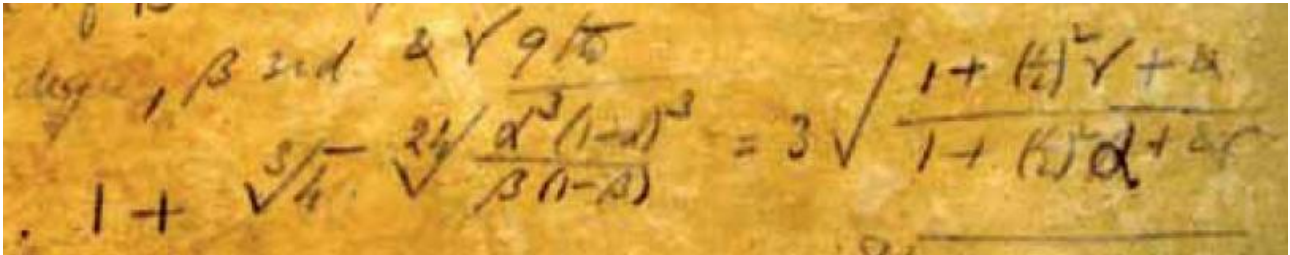 degree, β 3rd & γ 9th
1 + ∛4 · ²⁴√(α³(1-α)³ / β(1-β)) = 3 √((1 + (1/2)²γ + &c) / (1 + (1/2)²α + &c))